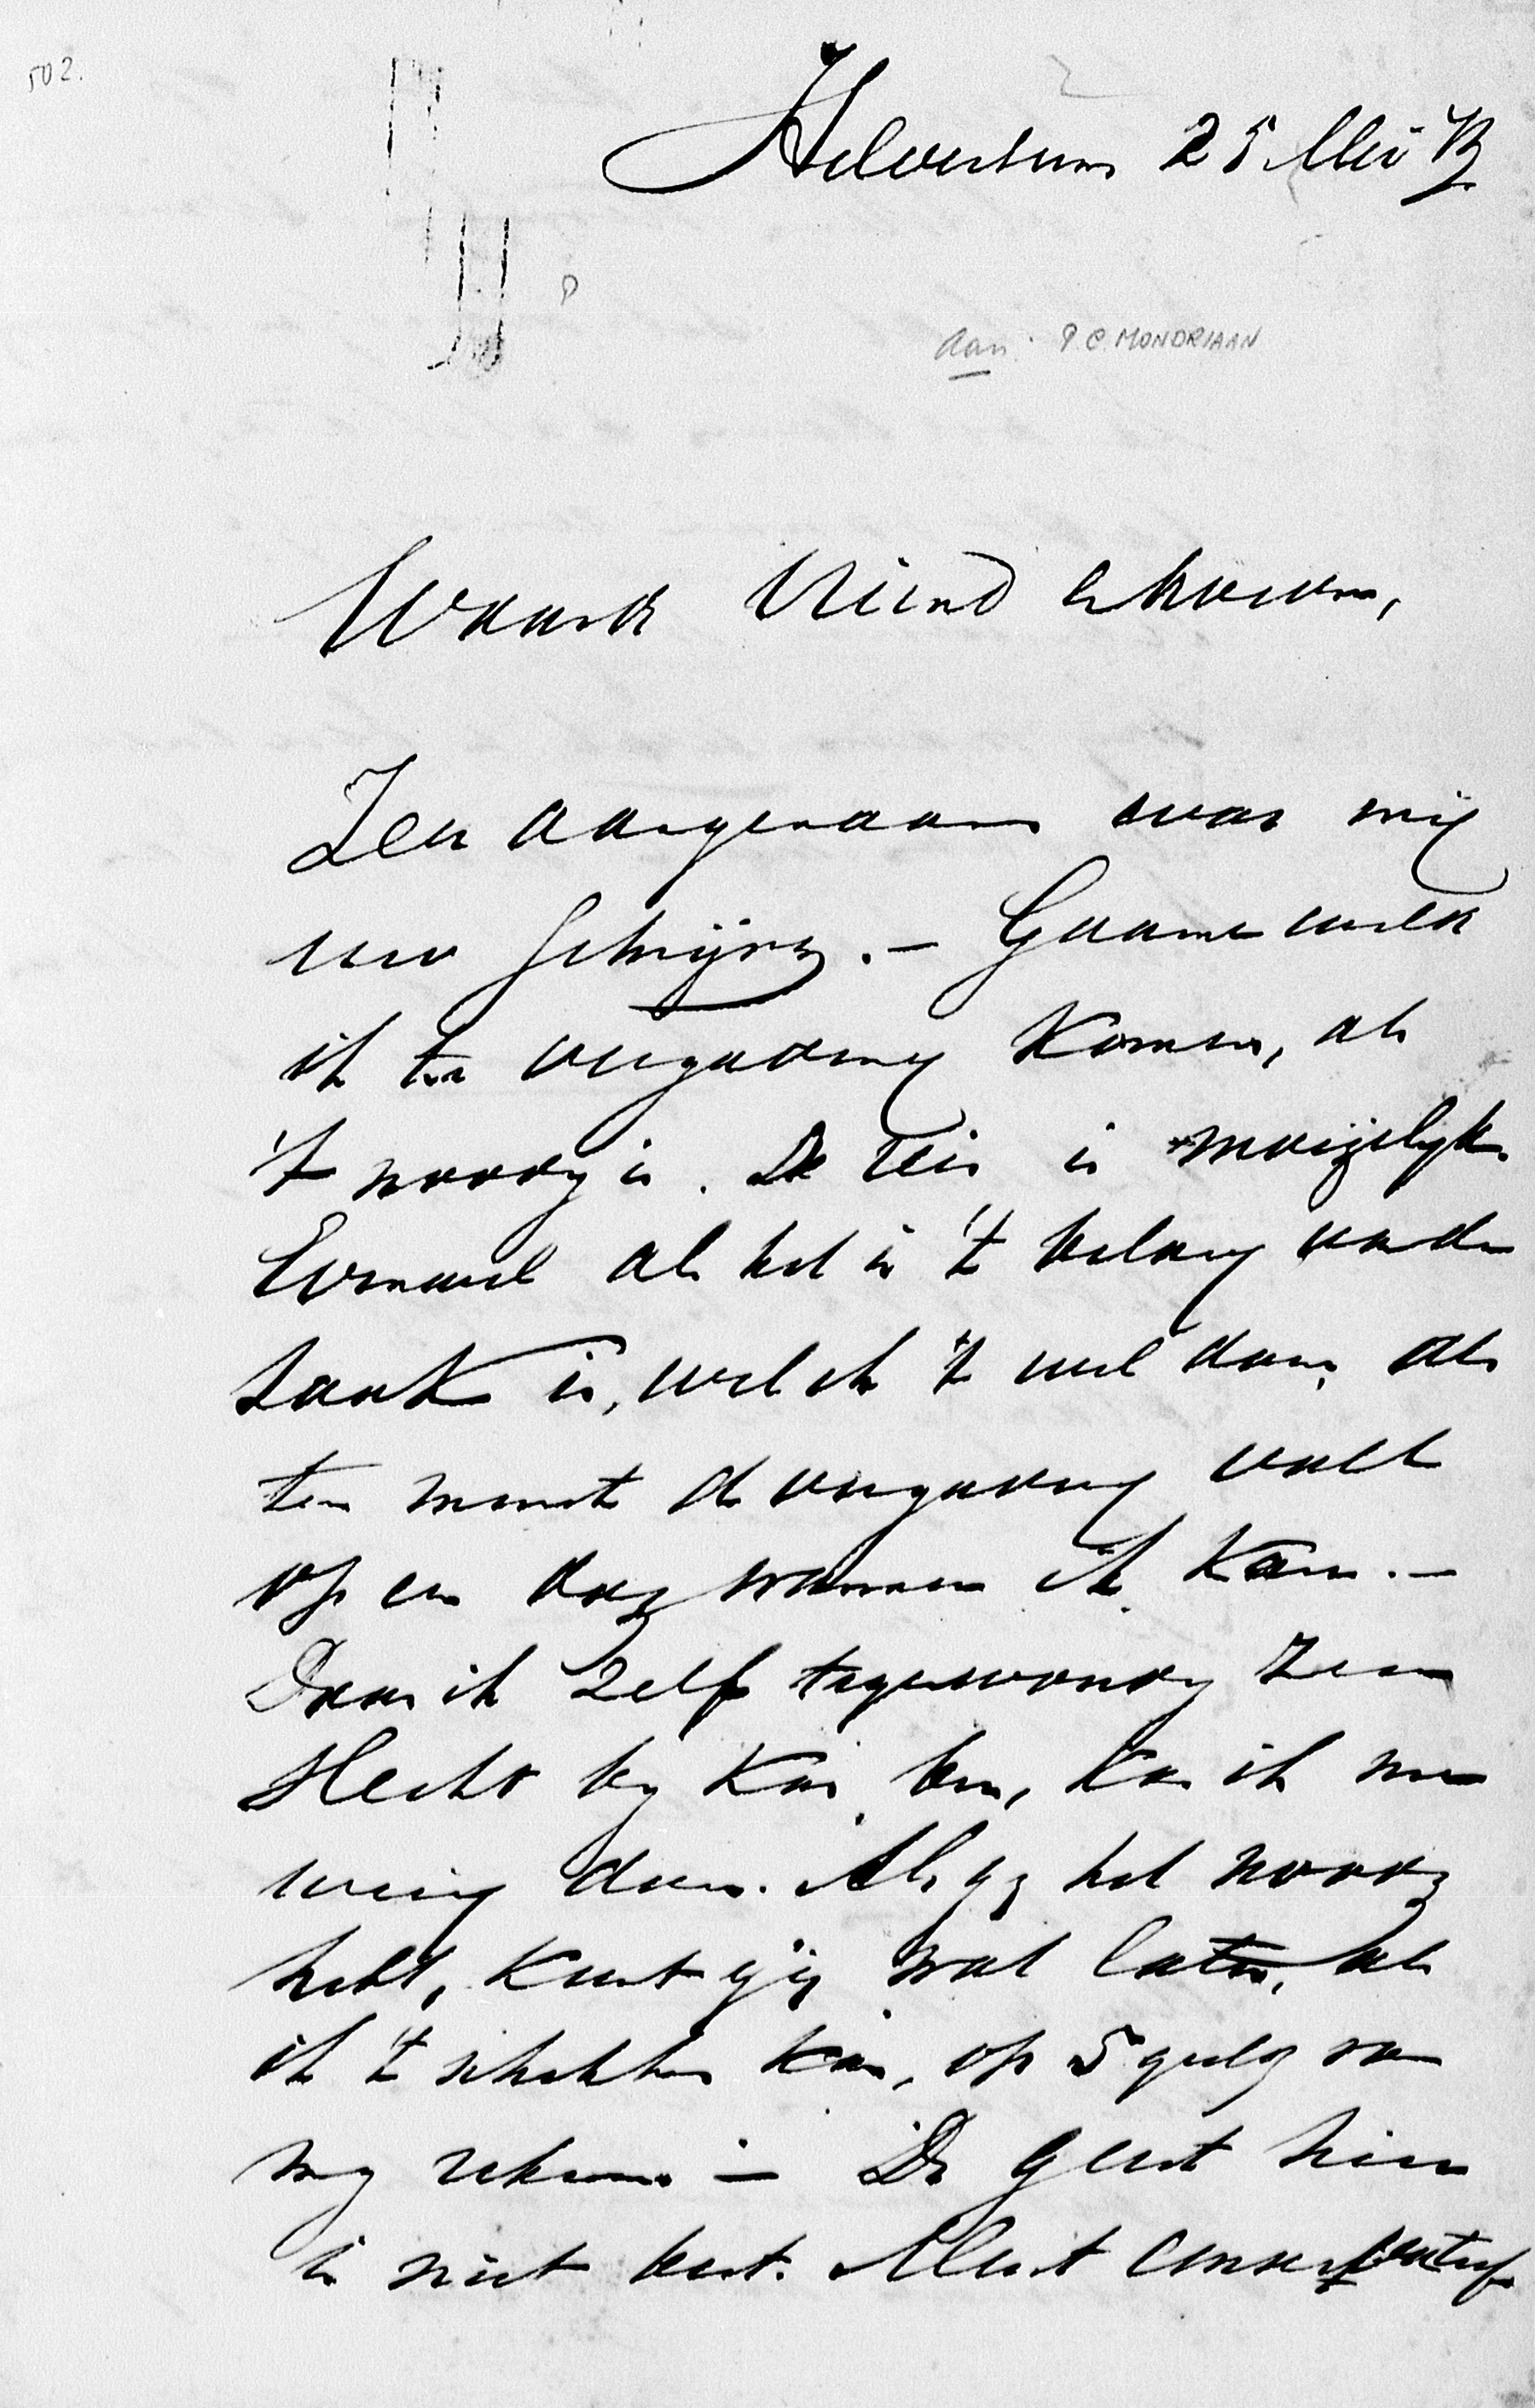 502.
Hilversum 25 Mei 73
Aan: P C. MONDRIAAN
Waarde Vriend en broeder,
Zeer aangenaam was mij
uw schrijven. – Gaarne wil
ik ter vergadering komen, als
't noodig is. De reis is moeijelijk.
Evenwel als het in 't belang van de
zaak is, wil ik 't wel doen, als
ten minste de vergadering valt
op een dag wanneer ik kan. –
Daar ik zelf tegenwoordig zeer
slecht by kas ben, kan ik maar
weinig doen. Als gij het noodig
hebt, kunt gij wat later, als
ik 't schikken kan, op 5 guld van
my rekenen – De geest hier
is niet best. Meest conservatief